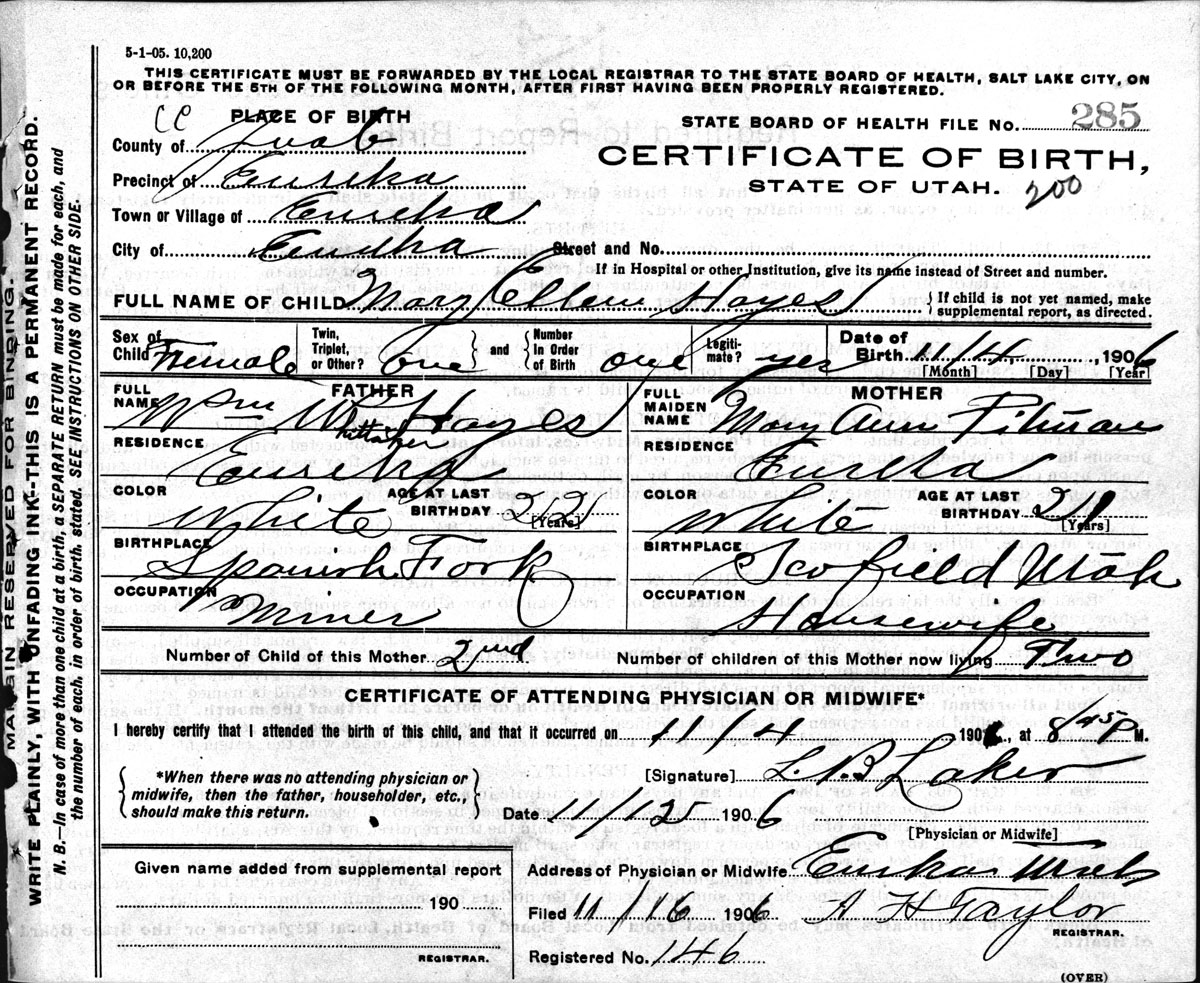 5-1-05. 10,200
THIS CERTIFICATE MUST BE FORWARDED BY THE LOCAL REGISTRAR TO THE STATE BOARD OF HEALTH, SALT LAKE CITY, ON
OR BEFORE THE 5TH OF THE FOLLOWING MONTH, AFTER FIRST HAVING BEEN PROPERLY REGISTERED.
CC PLACE OF BIRTH
STATE BOARD OF HEALTH FILE No. 285
County of Juab
CERTIFICATE OF BIRTH,
Precinct of Eureka
STATE OF UTAH. 200
Town or Village of Eureka
City of Eureka Street and No.
If in Hospital or other Institution, give its name instead of Street and number.
FULL NAME OF CHILD Mary Ellen Hayes { If child is not yet named, make supplemental report, as directed.
Sex of Child Female Twin, Triplet, or Other? One } and { Number In Order of Birth one Legiti-mate? yes Date of Birth 11/4 , 1906
[Month] [Day] [Year]
FATHER
FULL NAME Wm W. Hayes
Whittaker
RESIDENCE Eureka
COLOR White AGE AT LAST BIRTHDAY 22 [Years]
BIRTHPLACE Spanish Fork
OCCUPATION Miner
MOTHER
FULL MAIDEN NAME Mary Ann Pitman
RESIDENCE Eureka
COLOR White AGE AT LAST BIRTHDAY 21 [Years]
BIRTHPLACE Scofield Utah
OCCUPATION Housewife
Number of Child of this Mother 2nd Number of children of this Mother now living Two
CERTIFICATE OF ATTENDING PHYSICIAN OR MIDWIFE*
I hereby certify that I attended the birth of this child, and that it occurred on 11/4 1906, at 8 45 P M.
{ *When there was no attending physician or midwife, then the father, householder, etc., should make this return. }
[Signature] Laker
Date 11/125 1906
[Physician or Midwife]
Given name added from supplemental report
190
REGISTRAR.
Address of Physician or Midwife Eureka Utah
Filed 11/16 1906 A H Taylor
REGISTRAR.
Registered No. 146
(OVER)
MARGIN RESERVED FOR BINDING.
WRITE PLAINLY, WITH UNFADING INK--THIS IS A PERMANENT RECORD.
N. B.—In case of more than one child at a birth, a SEPARATE RETURN must be made for each, and
the number of each, in order of birth, stated. SEE INSTRUCTIONS ON OTHER SIDE.